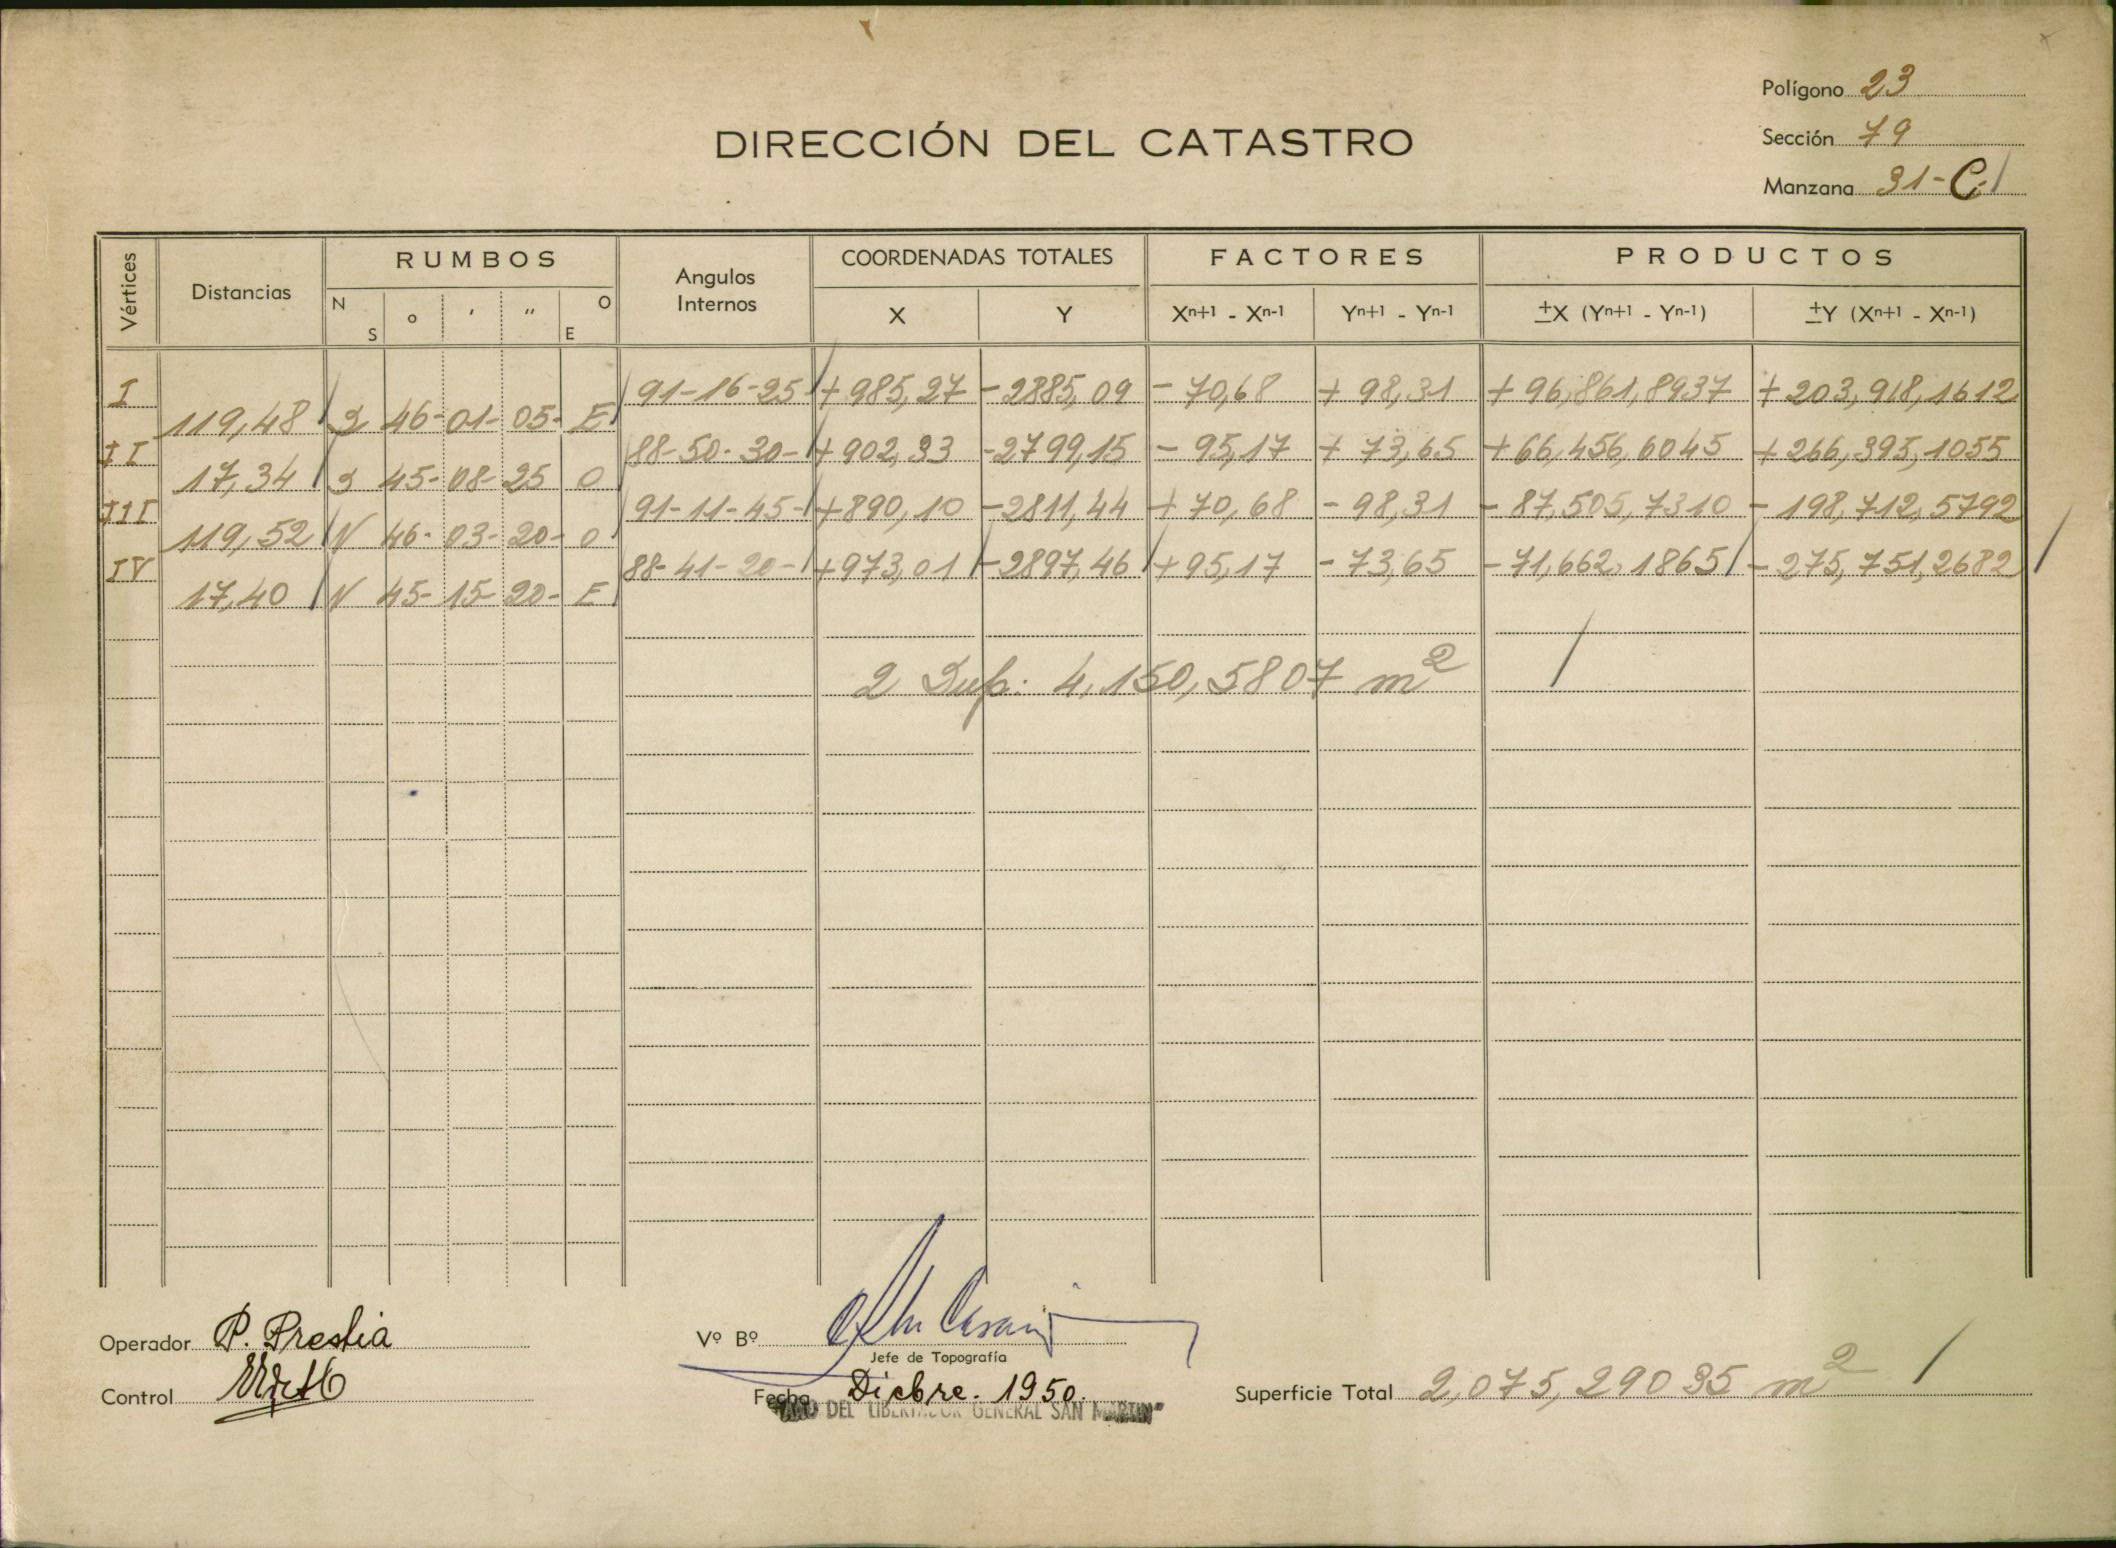 Polígono 23
DIRECCIÓN DEL CATASTRO
Sección 79
Manzana 31-C
Vértices Distancias RUMBOS Angulos Internos COORDENADAS TOTALES FACTORES PRODUCTOS
N S ° ' " O E X Y Xn+1 - Xn-1 Yn+1 - Yn-1 ±X (Yn+1 - Yn-1) ±Y (Xn+1 - Xn-1)
I 91-16-25 +985,27 -2885,09 -70,68 +98,31 +96,861,8937 +203,918,1612
119,48 S 46-01-05- E
II 88-50-30- +902,33 -2799,15 -95,17 +73,65 +66,456,6045 +266,395,1055
17,34 S 45-08-25 O
III 91-11-45- +890,10 -2811,44 +70,68 -98,31 -87,505,7310 -198,712,5792
119,52 N 46-03-20- O
IV 88-41-20- +973,01 -2897,46 +95,17 -73,65 -71,662,1865 -275,751,2682
17,40 N 45-15-20- E
2 Sup: 4,150,5807 m2
Operador P. Prestia
Vº Bº
Jefe de Topografía
Control
Fecha Dicbre. 1950.
Superficie Total 2,075,29035 m2
DEL LIBERTADOR GENERAL SAN MARTIN"